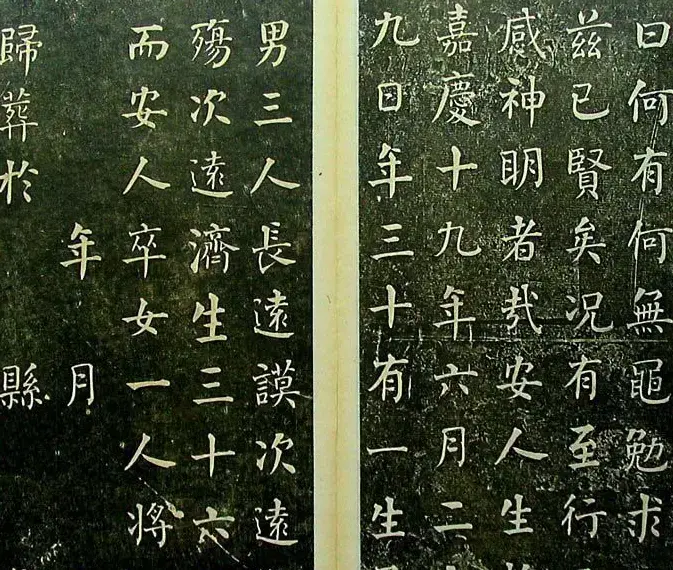 曰何有何無黽勉求
茲已賢矣况有至行
感神明者㢤安人生
嘉慶十九年六月二
九日年三十有一生
男三人長遠謨次遠
殤次遠濟生三十六
而安人卒女一人將
年 月
歸葬於 縣